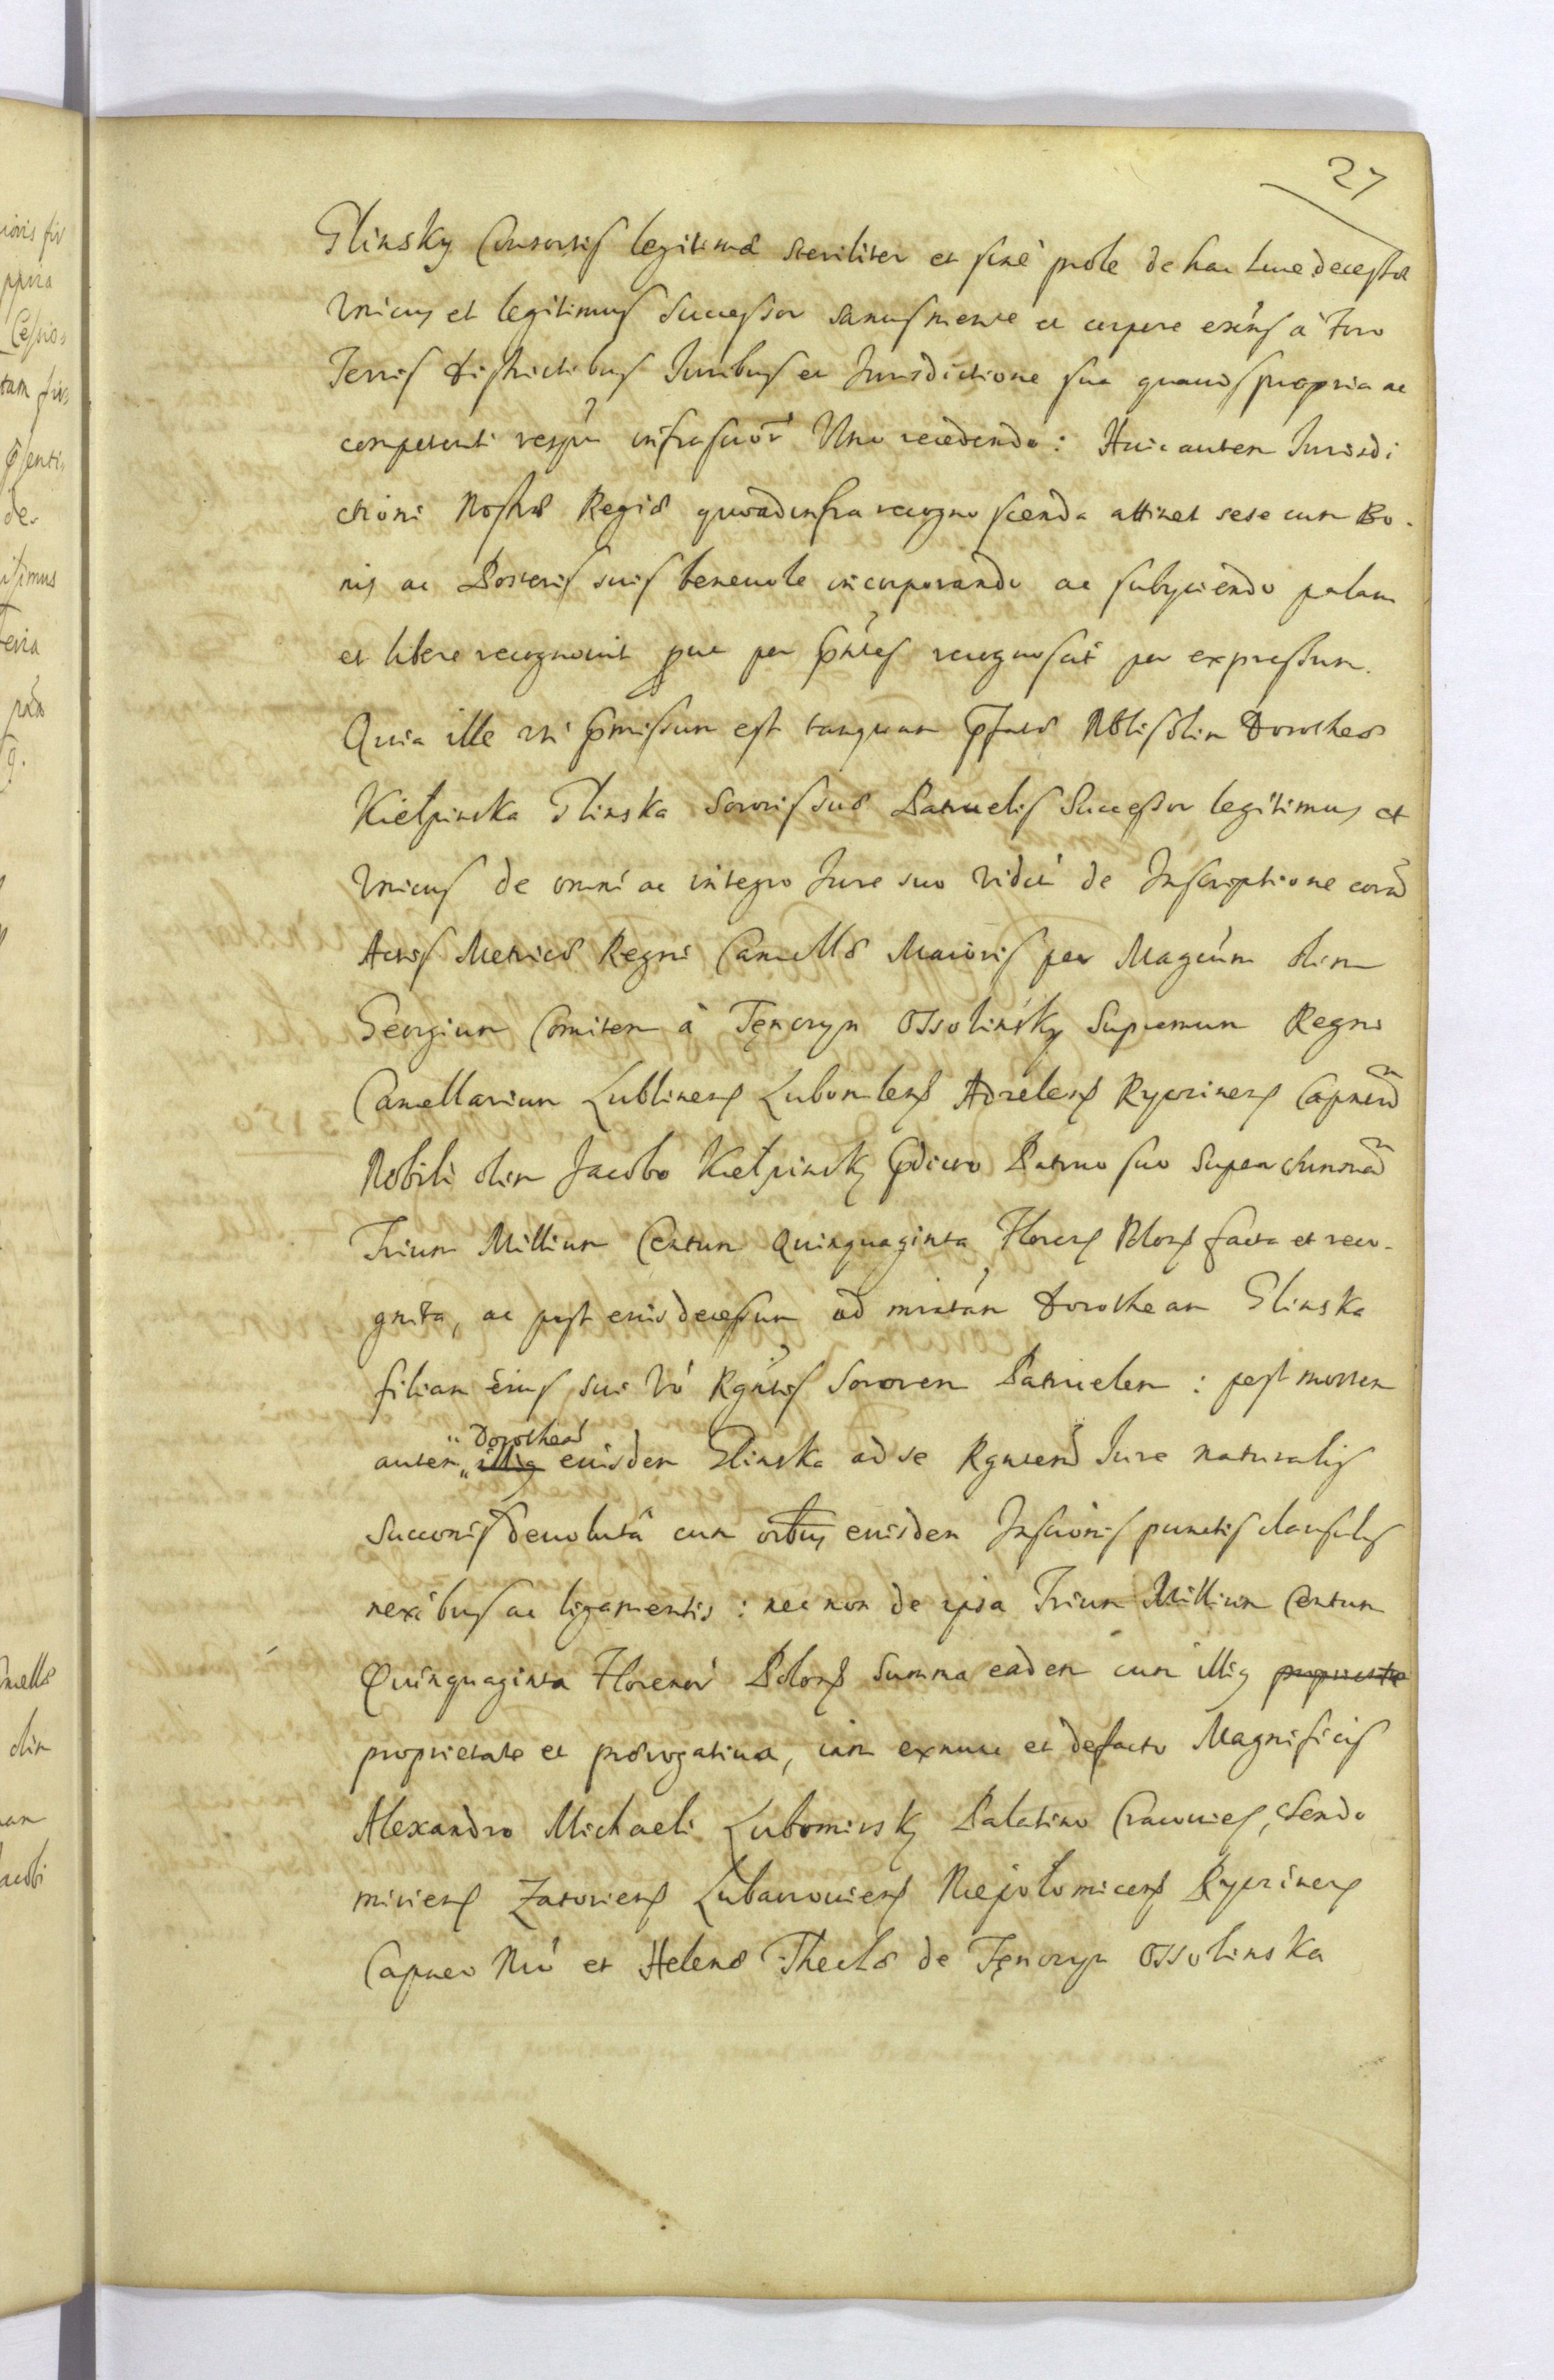 27
Glinsky Consortis legitimæ steriliter et sine prole de hac luce decessæ
Vnicus et legitimus Successor sanus mente et corpore exñs à Foro
Terris districtibus Juribus et Jurisdictione sua quauis propria ac
competenti respu infrascror Nno recedendo: Huic autem Jurisdi
ctioni Nostræ Regiæ quoad infra recognoscenda attinet sese cum Bo-
nis ac Posteris suis beneuole incorporando ac subyciendo palam
et libere recognouit prt per pñtes recognoscit per expressum.
Quia ille vti pmissum est tanquam pfatæ Nblis olim Dorotheæ
Kiełpinska Glinska Sororis suæ Patruelis Successor legitimus et
Vnicus de omni ac integro Jure suo vidct de Inscriptione corã
Actis Metrices Regni Cancellæ Maioris per Magcum olim
Georgium Comitem à Tęnczyn Ossolinsky Supremum Regni
Cancellarium Lublinens Lubomlens Adzelens Ryczinens Capneū
Nobili olim Jacobo Kiełpinsky pdicto Patruo suo Super Summã
Trium Millium Centum Quinquaginta Florens Polons facta et reco-
gnita, ac post eius decessum ad nratam Dorotheam Glinska
filiam eius sui vo Rgntis Sororem Patruelem: post mortem
autem „ Dorotheæ illig eiusdem Glinska ad se Rgntem Jure naturalis
Succonis deuolutâ cum oĩbus eiusdem Inscronis punctis clausulis
nexibus ac ligamentis: nec non de ipsa Trium Millium Centum
Quinquaginta Florenor Polons Summa eadem cum illig propriete
proprietate et prærogatiua, iam exnunc et defacto Magnificis
Alexandro Michaeli Lubomirsky Palatino Cracouies, Sendo
miriens Zatoriens Lubaczouiens Niepołomicens Ryczinens
Capneo Nro et Helenæ Theclæ de Tęnczyn Ossolinska